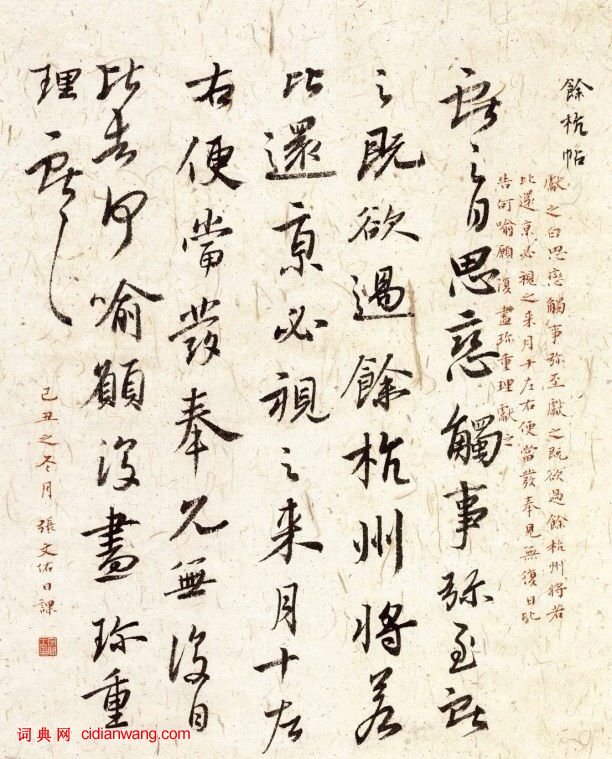 餘杭帖
獻之白思戀觸事弥至獻之既欲過餘杭州將若
比還京必視之来月十左右便當發奉見無復日比
告何喻願復盡珍重理獻之
獻之白思戀觸事弥至獻
之既欲過餘杭州將若
比還京必視之来月十左
右便當發奉見無復日
比告何喻願復盡珍重
理獻之
己丑之冬月張文佑日課
词典网 cidianwang.com